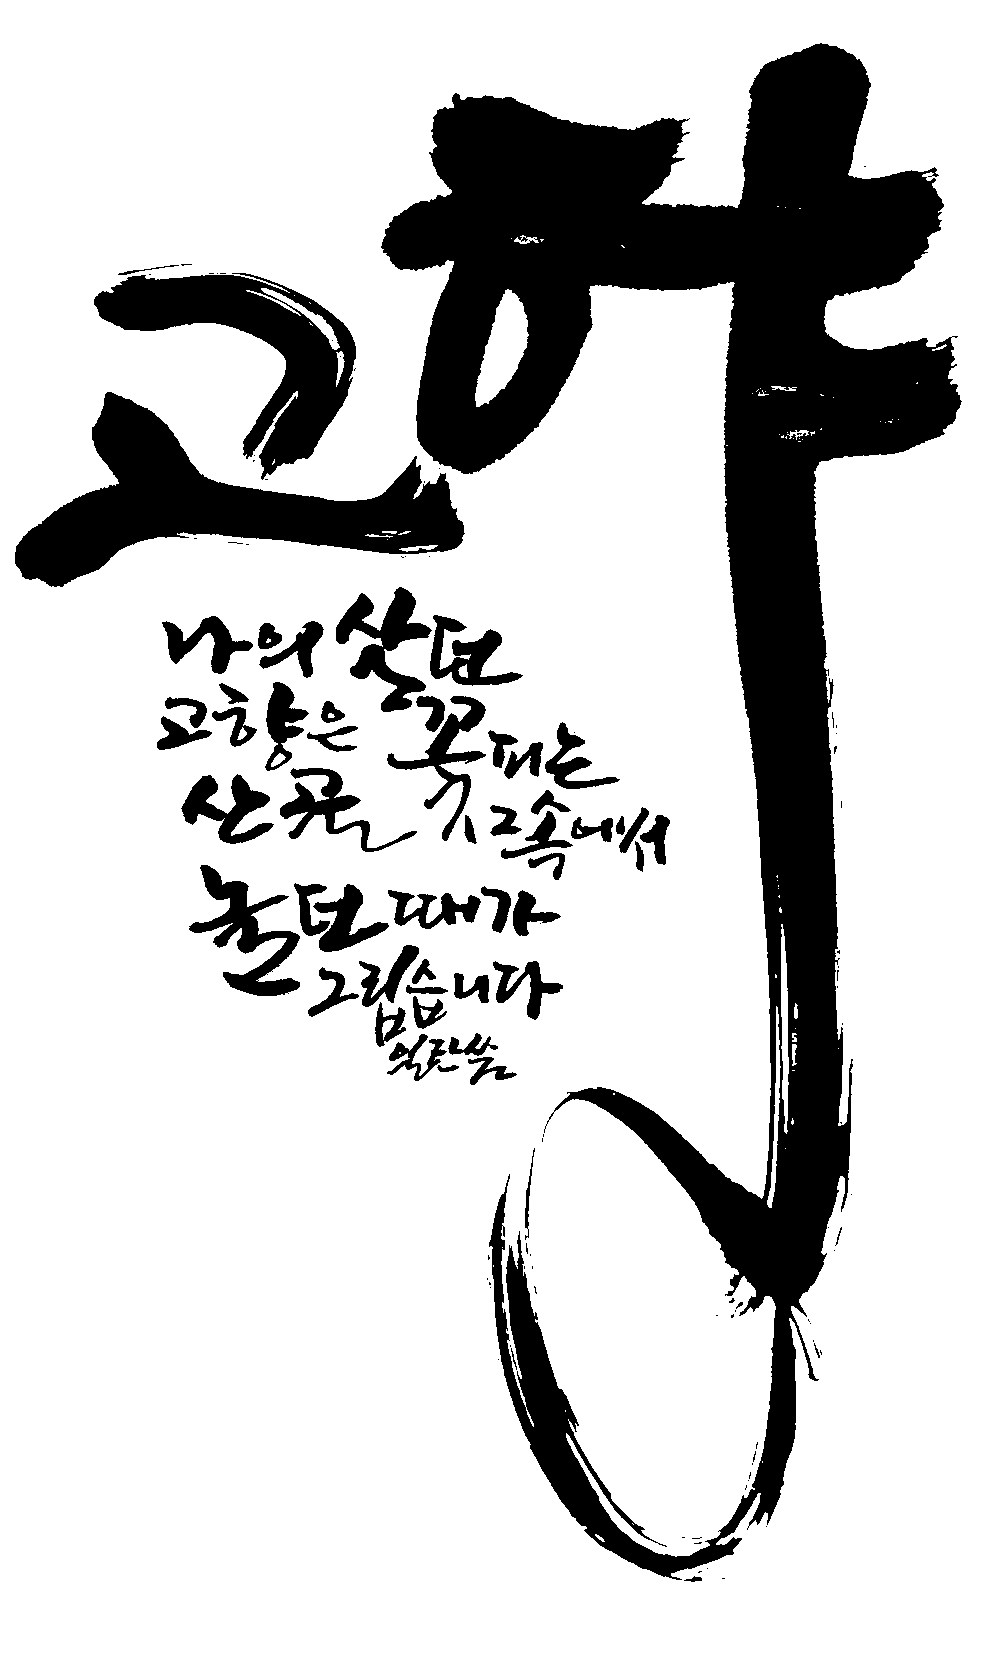 고향
나의 살던
고향은 꽃피는
산골 그속에서
놀던 때가
그립습니다